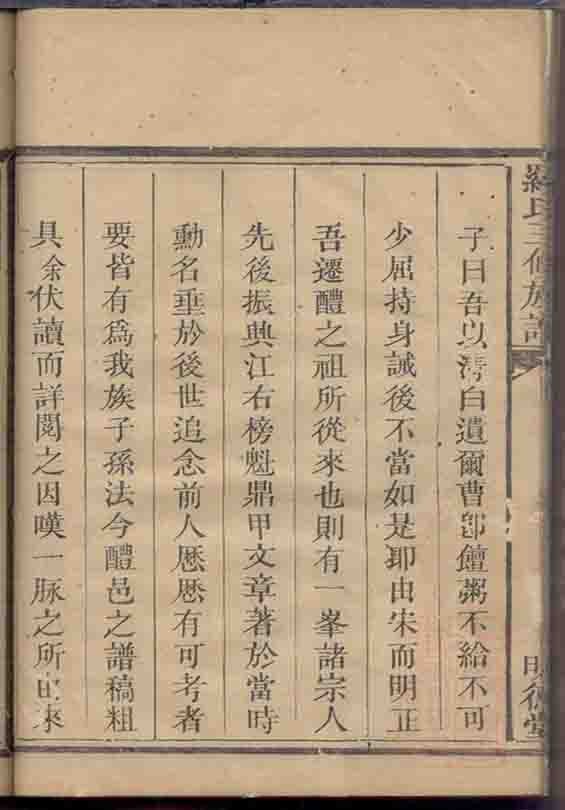 羅氏三修族譜
子曰吾以清白遺爾曹卽饘粥不給不可
少屈持身誡後不當如是耶由宋而明正
吾遷醴之祖所從來也則有一峯諸宗人
先後振興江右榜魁鼎甲文章著於當時
勳名垂於後世追念前人愿愿有可考者
要皆有爲我族子孫法今醴邑之譜稿粗
具余伏讀而詳閱之因嘆一脉之所由來